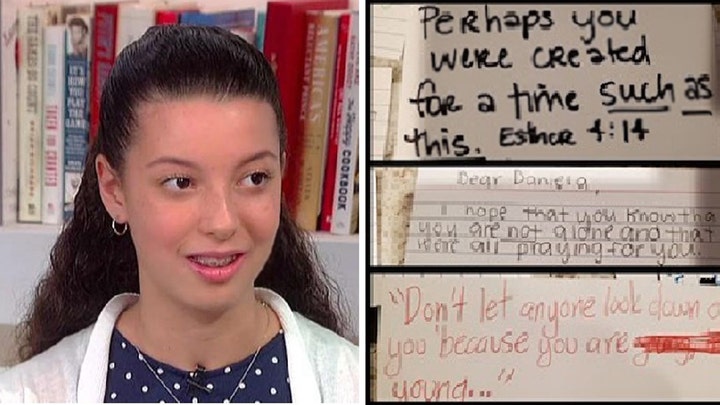 TAKEN FOR GRANTED
AMERICA'S
RELUCTANT PRINCE
COOKBOOK
Perhaps you
were created
for a time such as
this. Esther 4:14
Dear Daniela,
I hope that you know tha
you are not alone and that
we're all praying for you.
"Don't let anyone look down o
you because you are
young..."